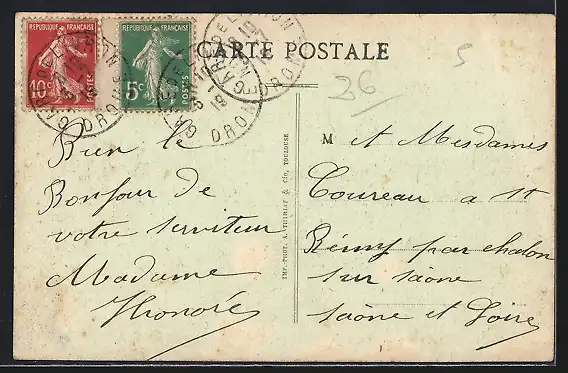 REPUBLIQUE FRANÇAISE
10c
POSTES
REPUBLIQUE FRANÇAISE
5c
POSTES
CARTE POSTALE
5
36
GARE DE
DROME
Bien le
Bonjour de
votre serviteur
Madame
Honoré
IMP.-PHOT. A. THIRIAT & Cie, TOULOUSE
M et Mesdames
Coureau a St
Rémy par chalon
sur saône
saône et Loire